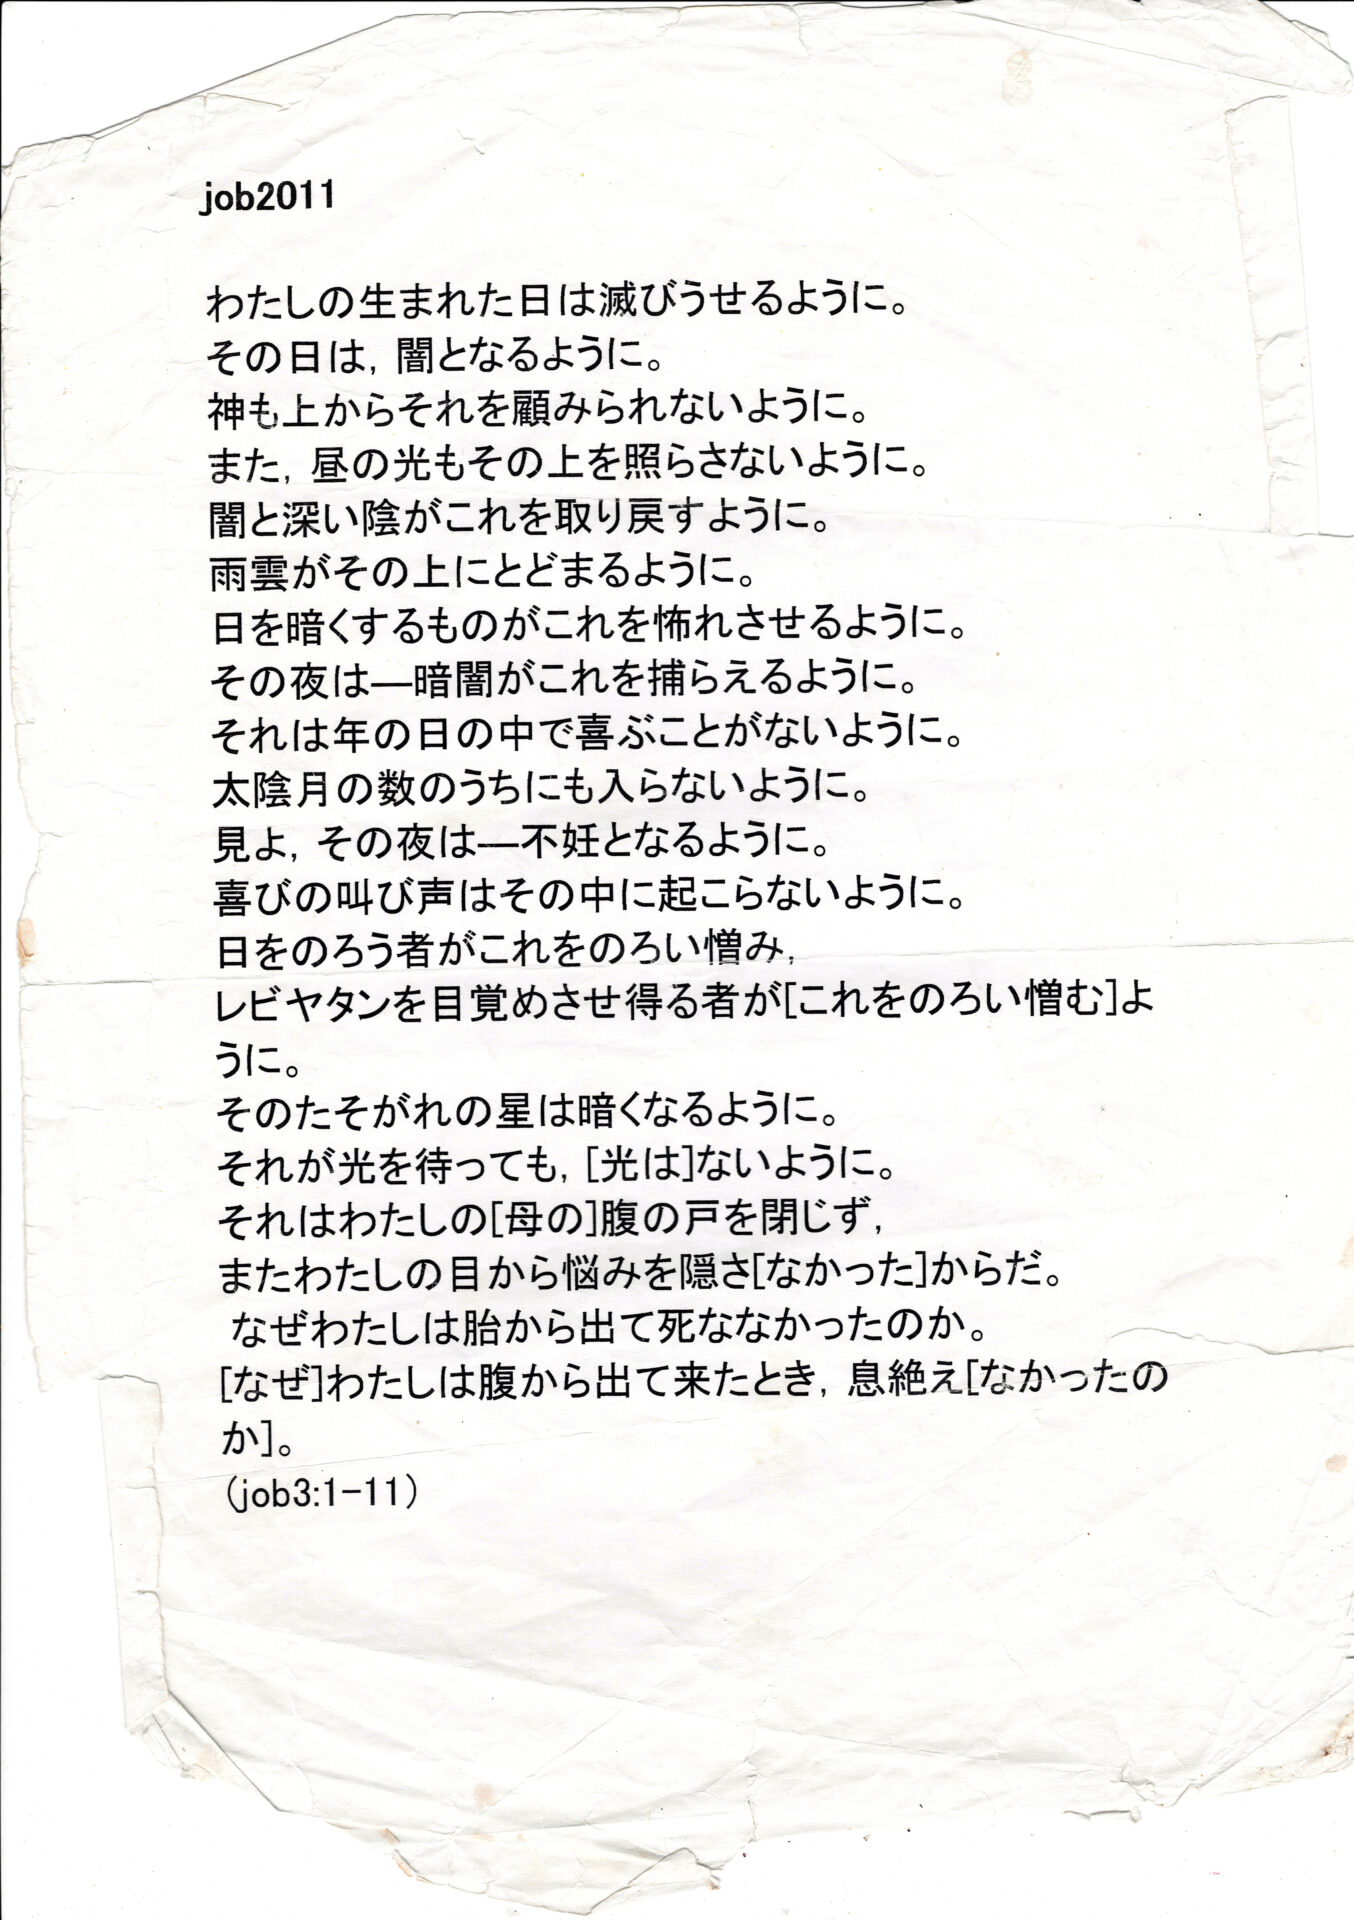 job2011
わたしの生まれた日は滅びうせるように。
その日は, 闇となるように。
神も上からそれを顧みられないように。
また, 昼の光もその上を照らさないように。
闇と深い陰がこれを取り戻すように。
雨雲がその上にとどまるように。
日を暗くするものがこれを怖れさせるように。
その夜は―暗闇がこれを捕らえるように。
それは年の日の中で喜ぶことがないように。
太陰月の数のうちにも入らないように。
見よ, その夜は―不妊となるように。
喜びの叫び声はその中に起こらないように。
日をのろう者がこれをのろい憎み,
レビヤタンを目覚めさせ得る者が[これをのろい憎む]よ
うに。
そのたそがれの星は暗くなるように。
それが光を待っても, [光は]ないように。
それはわたしの[母の]腹の戸を閉じず,
またわたしの目から悩みを隠さ[なかった]からだ。
なぜわたしは胎から出て死ななかったのか。
[なぜ]わたしは腹から出て来たとき, 息絶え[なかったの
か]。
(job3:1-11)